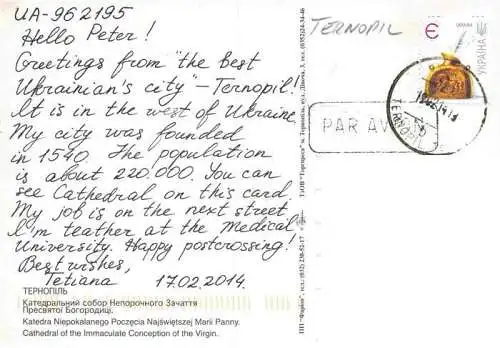 UA-962195
Hello Peter!
Greetings from "the best
Ukrainian's city" – Ternopil!
It is in the west of Ukraine.
My city was founded
in 1540. The population
is about 220.000. You can
see Cathedral on this card.
My job is on the next street
I'm teather at the Medical
University. Happy postcrossing!
Best wishes,
Tetiana 17.02.2014.
ТЕРНОПІЛЬ
Катедральний собор Непорочного Зачаття
Пресвятої Богородиці.
Katedra Niepokalanego Poczęcia Najświętszej Marii Panny.
Cathedral of the Immaculate Conception of the Virgin.
TERNOPIL
Є
УКРАЇНА
PAR AV